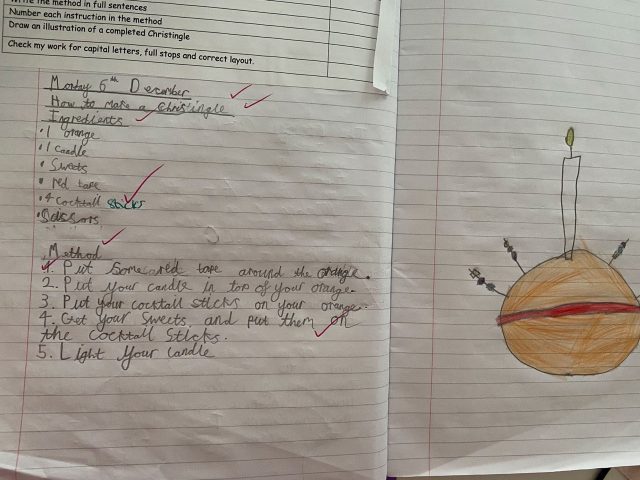 Write the method in full sentences
Number each instruction in the method
Draw an illustration of a completed Christingle
Check my work for capital letters, full stops and correct layout.
Monday 6th December
How to make a Christingle
Ingredients
• 1 orange
• 1 candle
• Sweets
• red tape
• 4 cocktall sticks
• Scissors
Method
1. Put Some red tape around the orange.
2. Put your candle in top of your orange.
3. Put your cocktall sticks on your orange.
4. Get your Sweets and put them on
the cocktall Sticks.
5. Light your candle